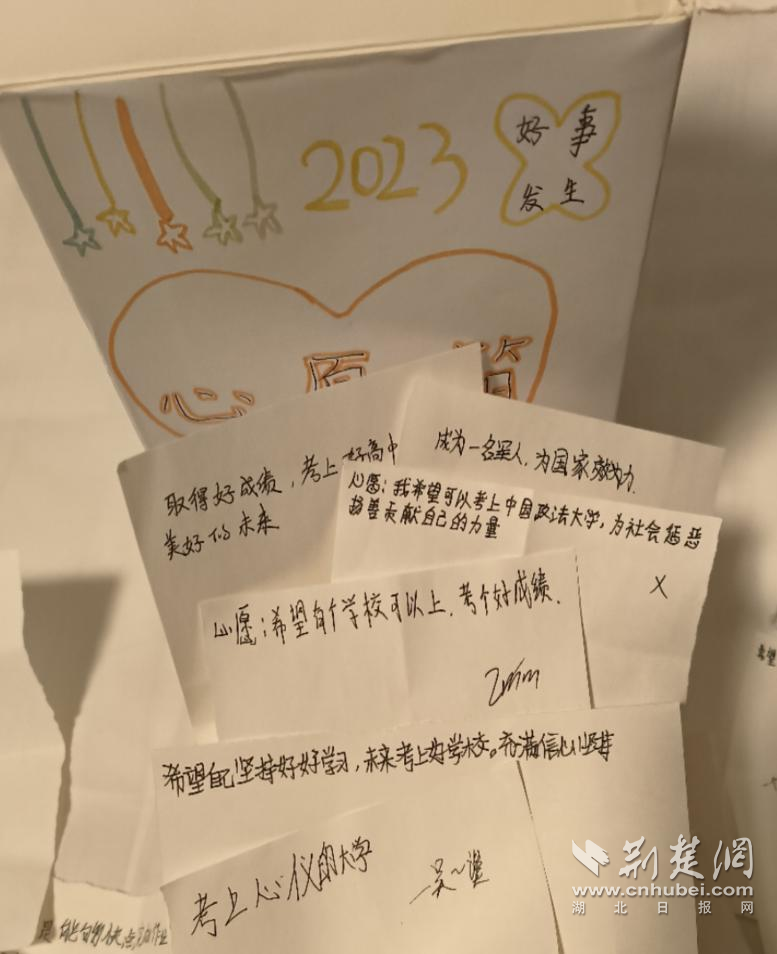 2023
好事
发生
心愿
取得好成绩，考上 好高中
美好的未来
成为一名军人，为国家效力.
心愿：我希望可以考上中国政法大学，为社会惩恶
扬善贡献自己的力量
心愿：希望有个学校可以上，考个好成绩.
希望自己坚持好好学习，未来考上好学校。充满信心坚持
考上心仪的大学
希望
荆楚网
www.cnhubei.com
湖北日报网